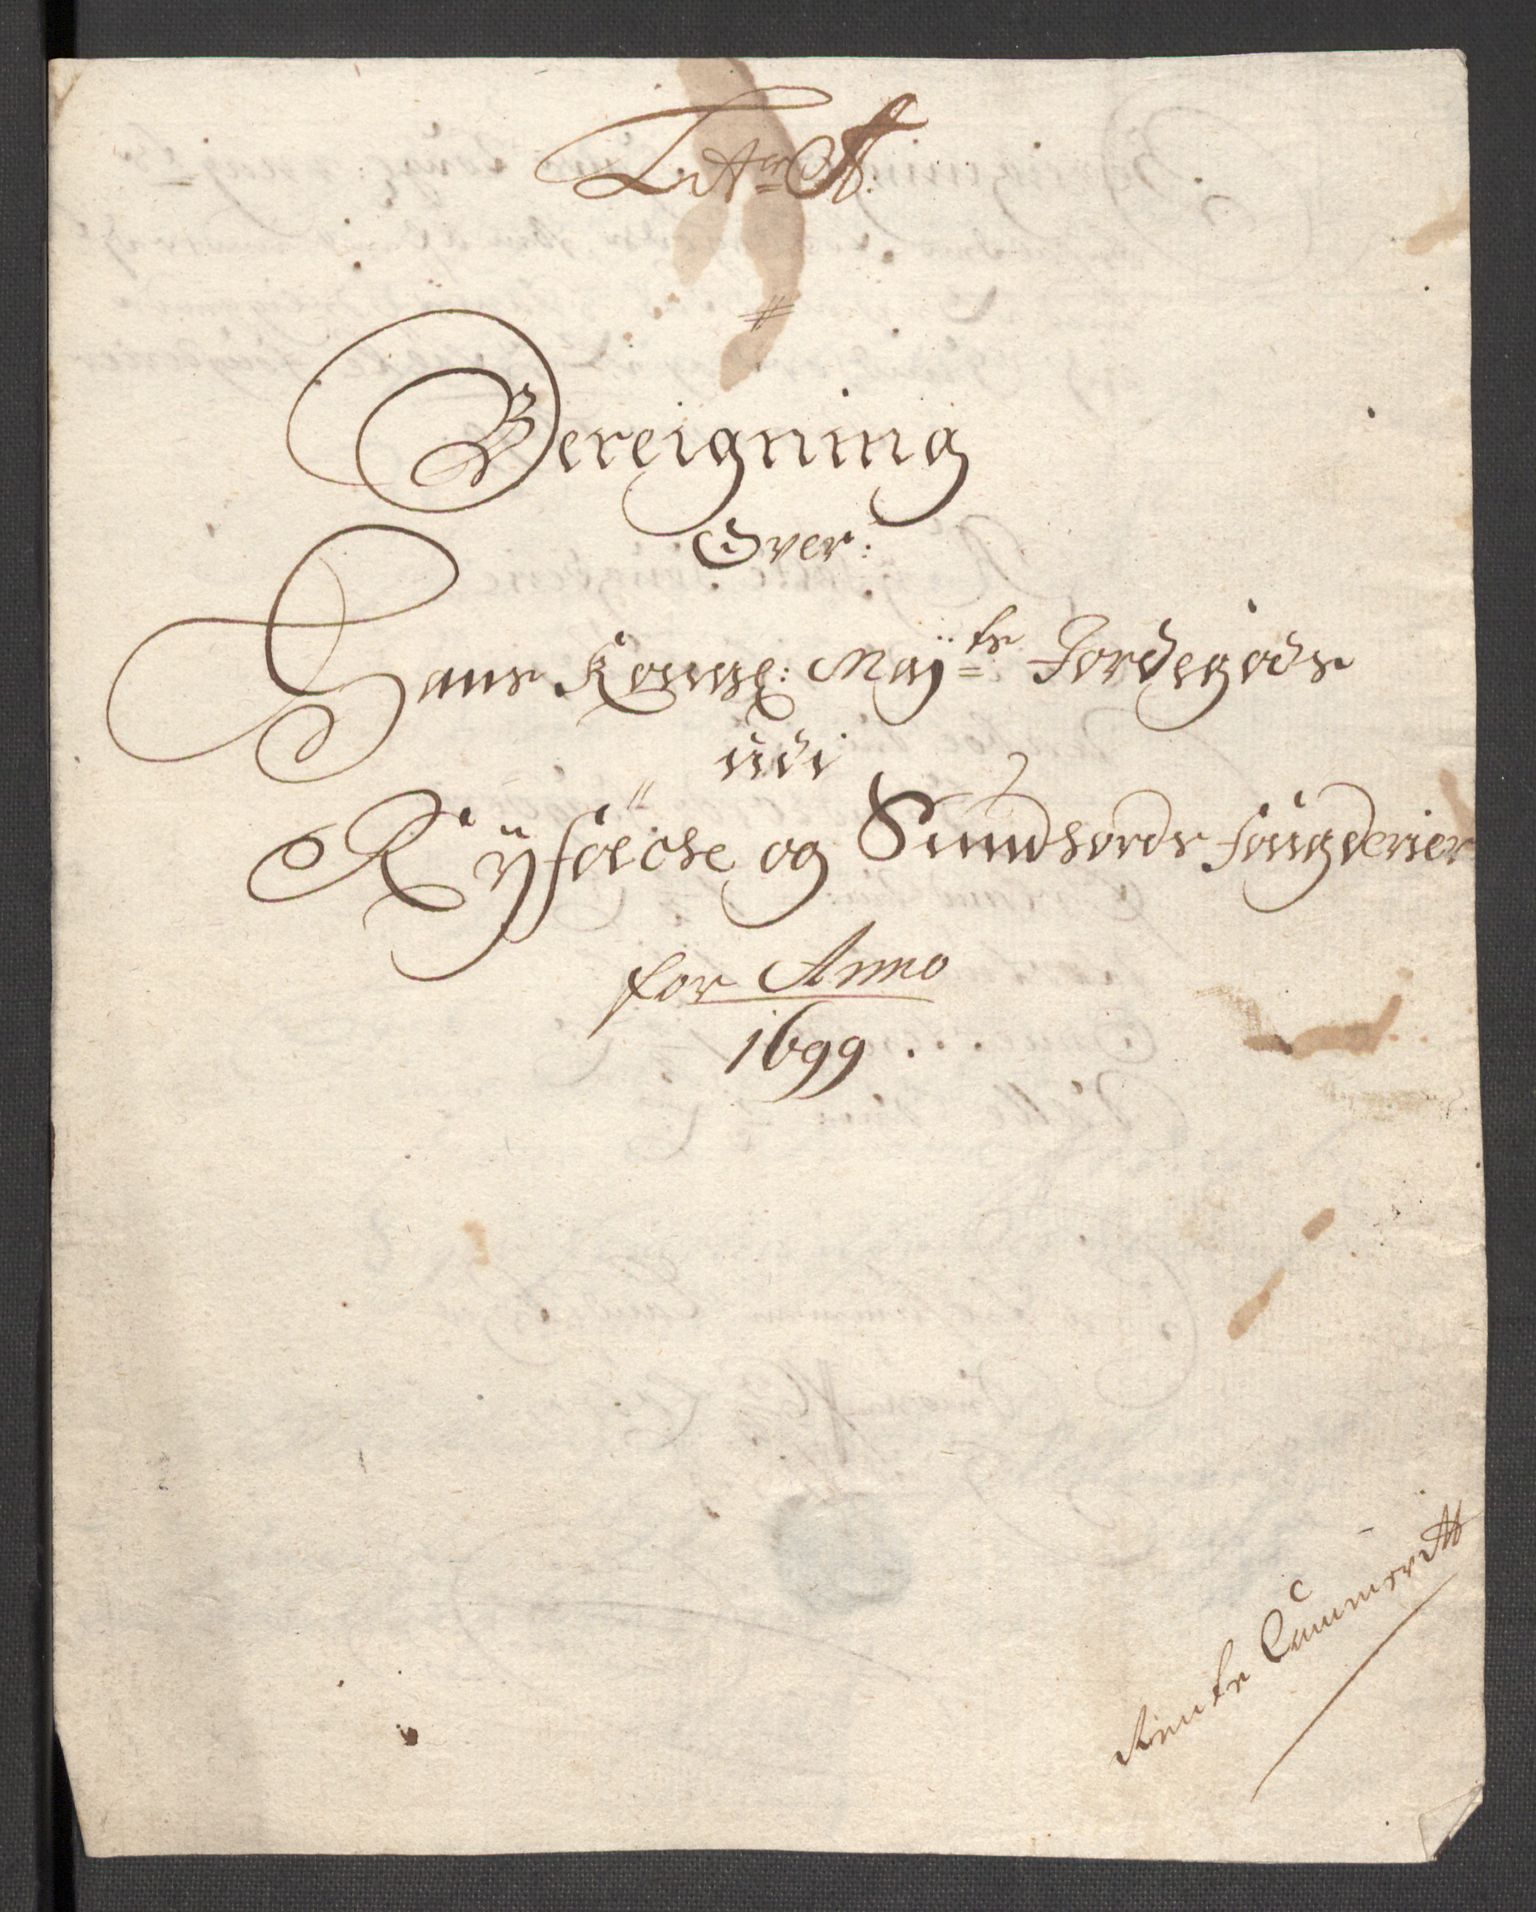 Litr A:
Bereigning
Over:
Hans Kongl: Maÿts Jordegods
udi
Rÿfölche og Sundhords fougderier
for Anno
1699.
Rente Cammer